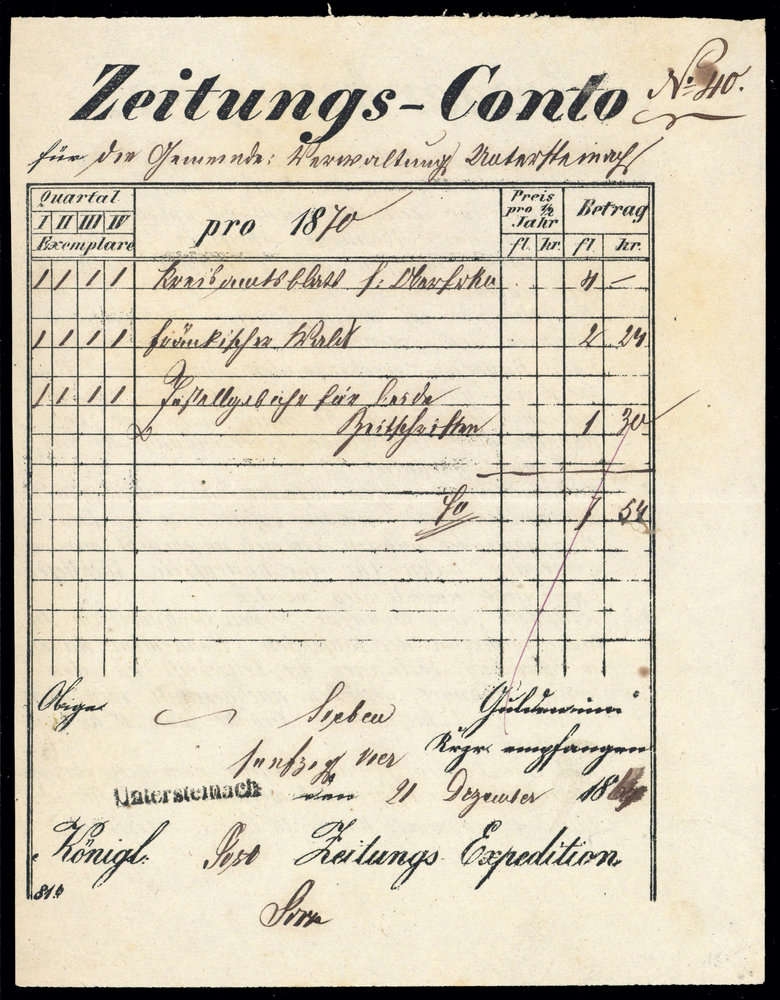 Zeitungs-Conto No 40.
für die Gemeinde: Verwaltung Untersteinach
Quartal
I II III IV
Exemplare
pro 1870
Preis
pro ½
Jahr
fl. kr.
Betrag
fl. kr.
1 1 1 1 Kreisamtsblatt f: Oberfrkn 4 —
1 1 1 1 Fränkischer Wald 2 24
1 1 1 1 Zustellgebühr für beide
Zeitschriften 1 30
7 54
Obige Sieben Gulden
fünfzig vier Krzr. empfangen
Untersteinach den 21 Dezember 18
Königl. Post Zeitungs Expedition.